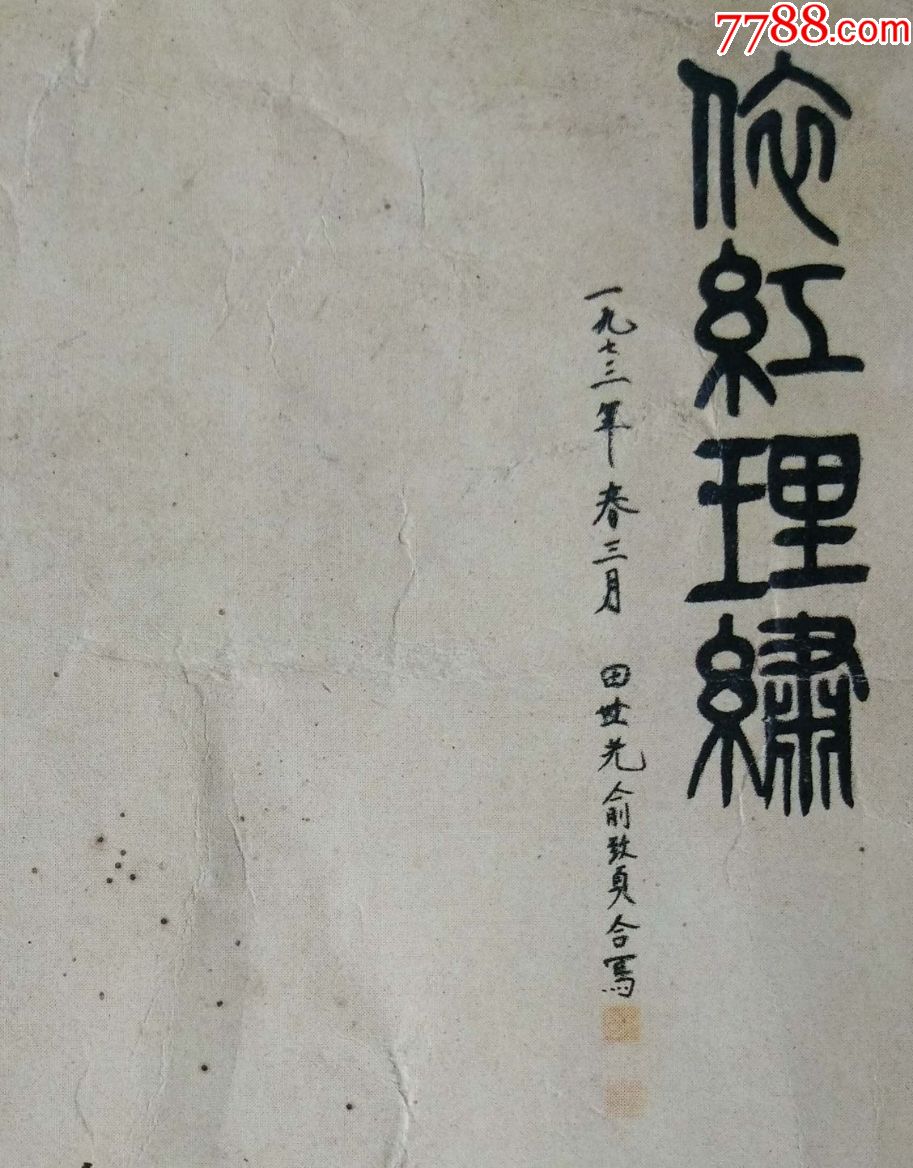 7788.com
依紅理繡
一九七三年春三月 田世光俞致貞合寫